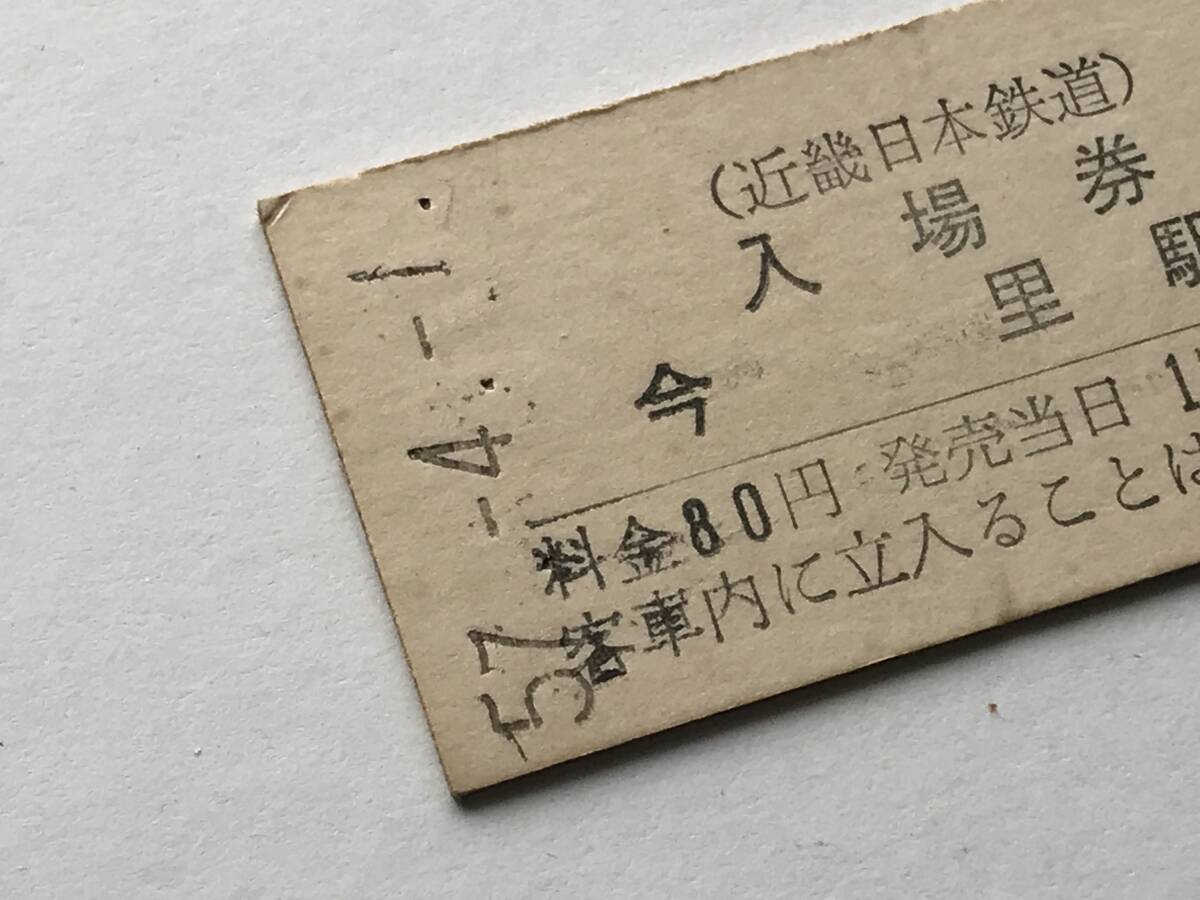 (近畿日本鉄道)
入場券
今里駅
料金80円 発売当日1
客車内に立入ることは
57.-4.-1